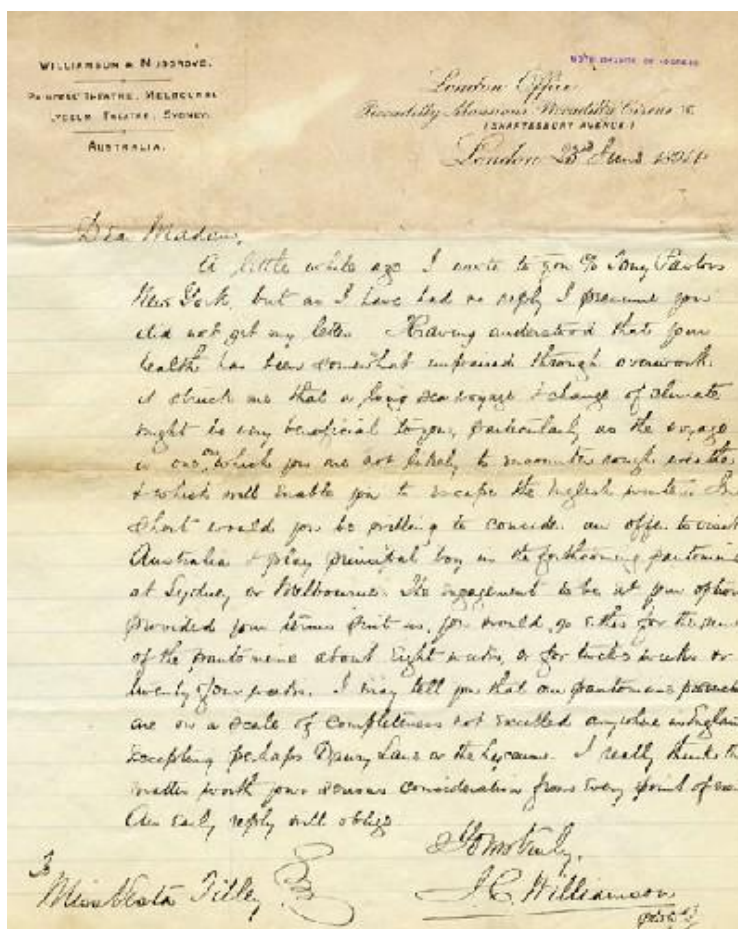 WILLIAMSON & MUSGROVE.
PRINCESS THEATRE, MELBOURNE
LYCEUM THEATRE, SYDNEY.
AUSTRALIA.
NOTE CHANGE OF ADDRESS
London Office
Piccadilly Mansions, Piccadilly Circus
(SHAFTESBURY AVENUE)
London 23rd June 1894
Dear Madam,
A little while ago I wrote to you c/o Tony Pastors
New York, but as I have had no reply I presume you
did not get my letter. Having understood that your
health has been somewhat impaired through overwork.
it struck me that a long sea voyage & change of climate
might be very beneficial to you, particularly as the voyage
is one in which you are not likely to encounter rough weather
& which will enable you to escape the English winter. In
short would you be willing to consider an offer to visit
Australia & play principal boy in the forthcoming pantomime
at Sydney or Melbourne. The engagement to be at your option
provided your terms suit us, you would go either for the run
of the pantomime about Eight weeks, or for twelve weeks or
twenty four weeks. I may tell you that our pantomime
are on a scale of completeness not excelled anywhere in England
excepting perhaps Drury Lane or the Lyceum. I really think the
matter worth your serious consideration from every point of view
An early reply will oblige
Yours truly,
J. C. Williamson
To
Miss Vesta Tilley